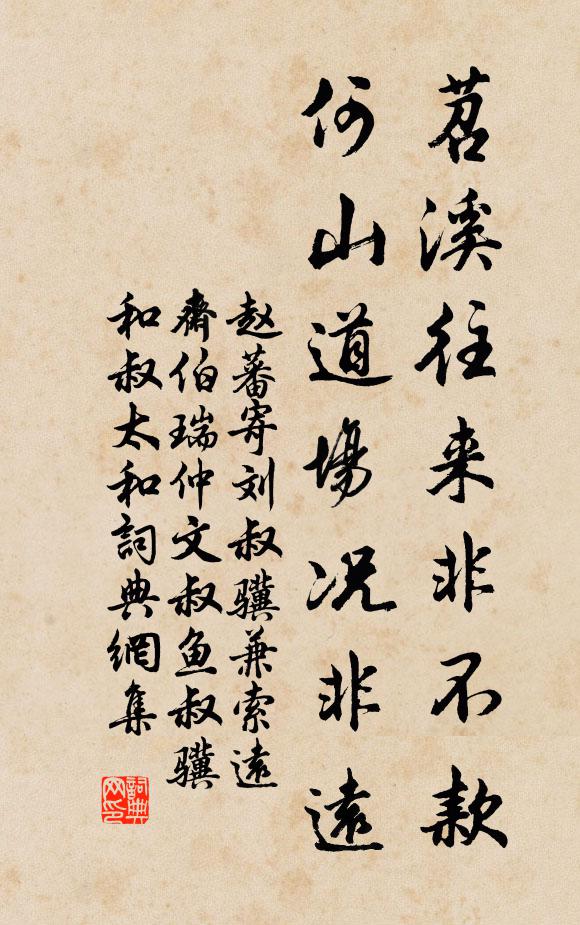 苕溪往来非不款
何山道場况非遠
赵蕃寄刘叔骥兼索遠
齋伯瑞仲文叔鱼叔骥
和叔太和詞典網集
詞典网印